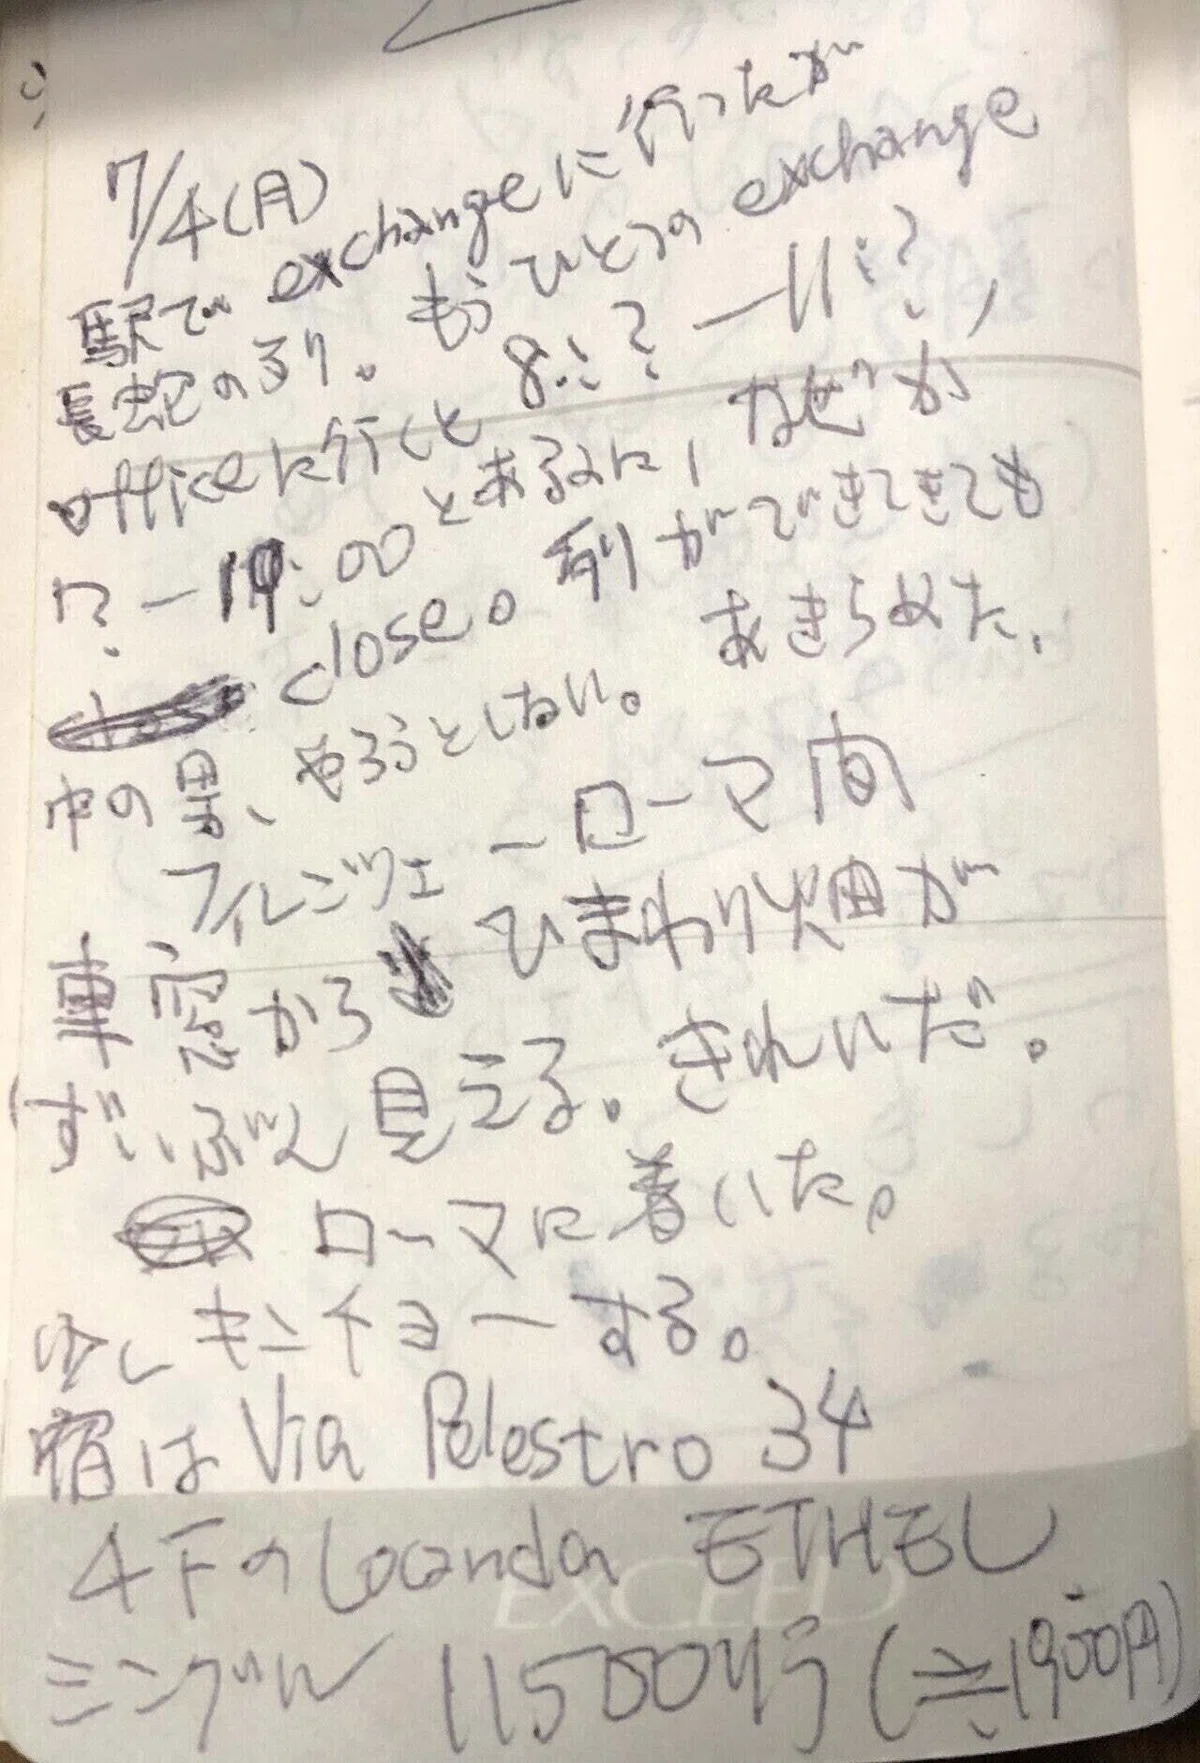 7/4(月)
駅で exchangeに行ったが
長蛇のろり。もうひとつの exchange
officeに行くと 8:? ー11:?,
?ー19:00とあるのに, なぜか
close。列ができてきても
中の男、やろうとしない。 あきらめた.
フィレンツェーローマ間
車窓から ひまわり畑が
ずいぶん見える。きれいだ。
ローマに着いた。
少しキンチョーする。
宿は Via Palestro 34
4Fの Locanda ETHEL
EXCEED
シングル 11500リラ(≒1900円)